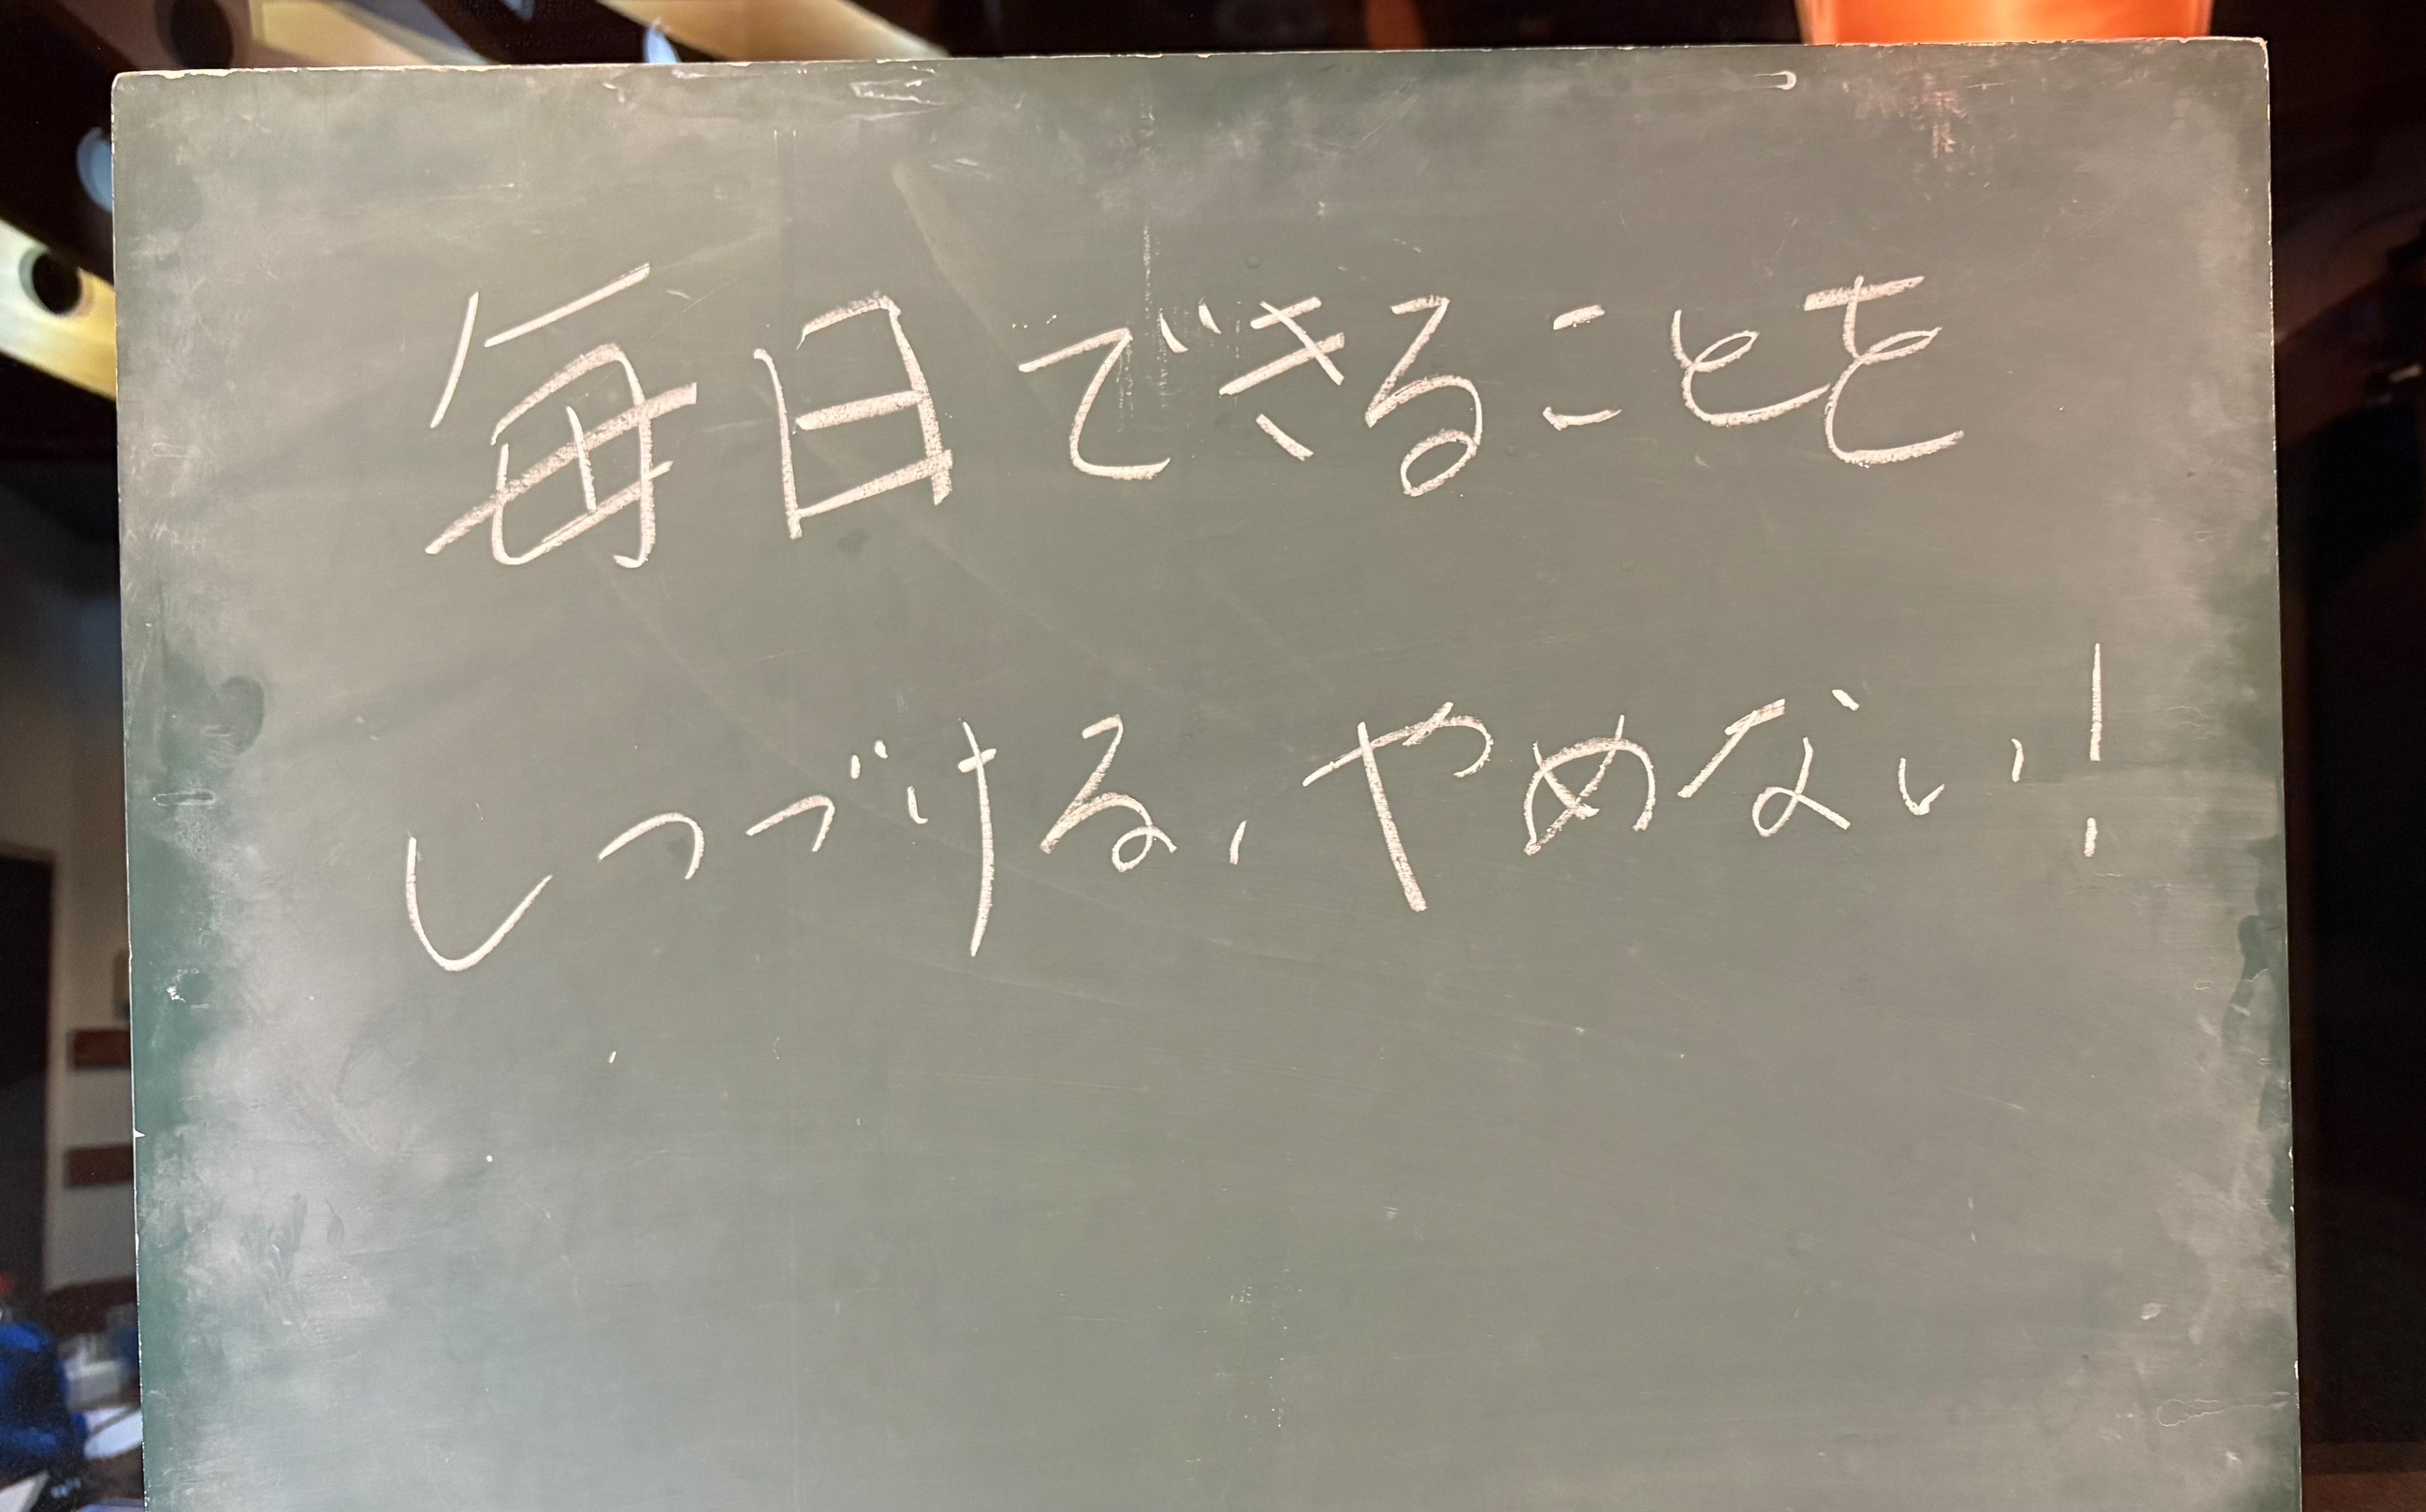 毎日できることを
しつづける、やめない!